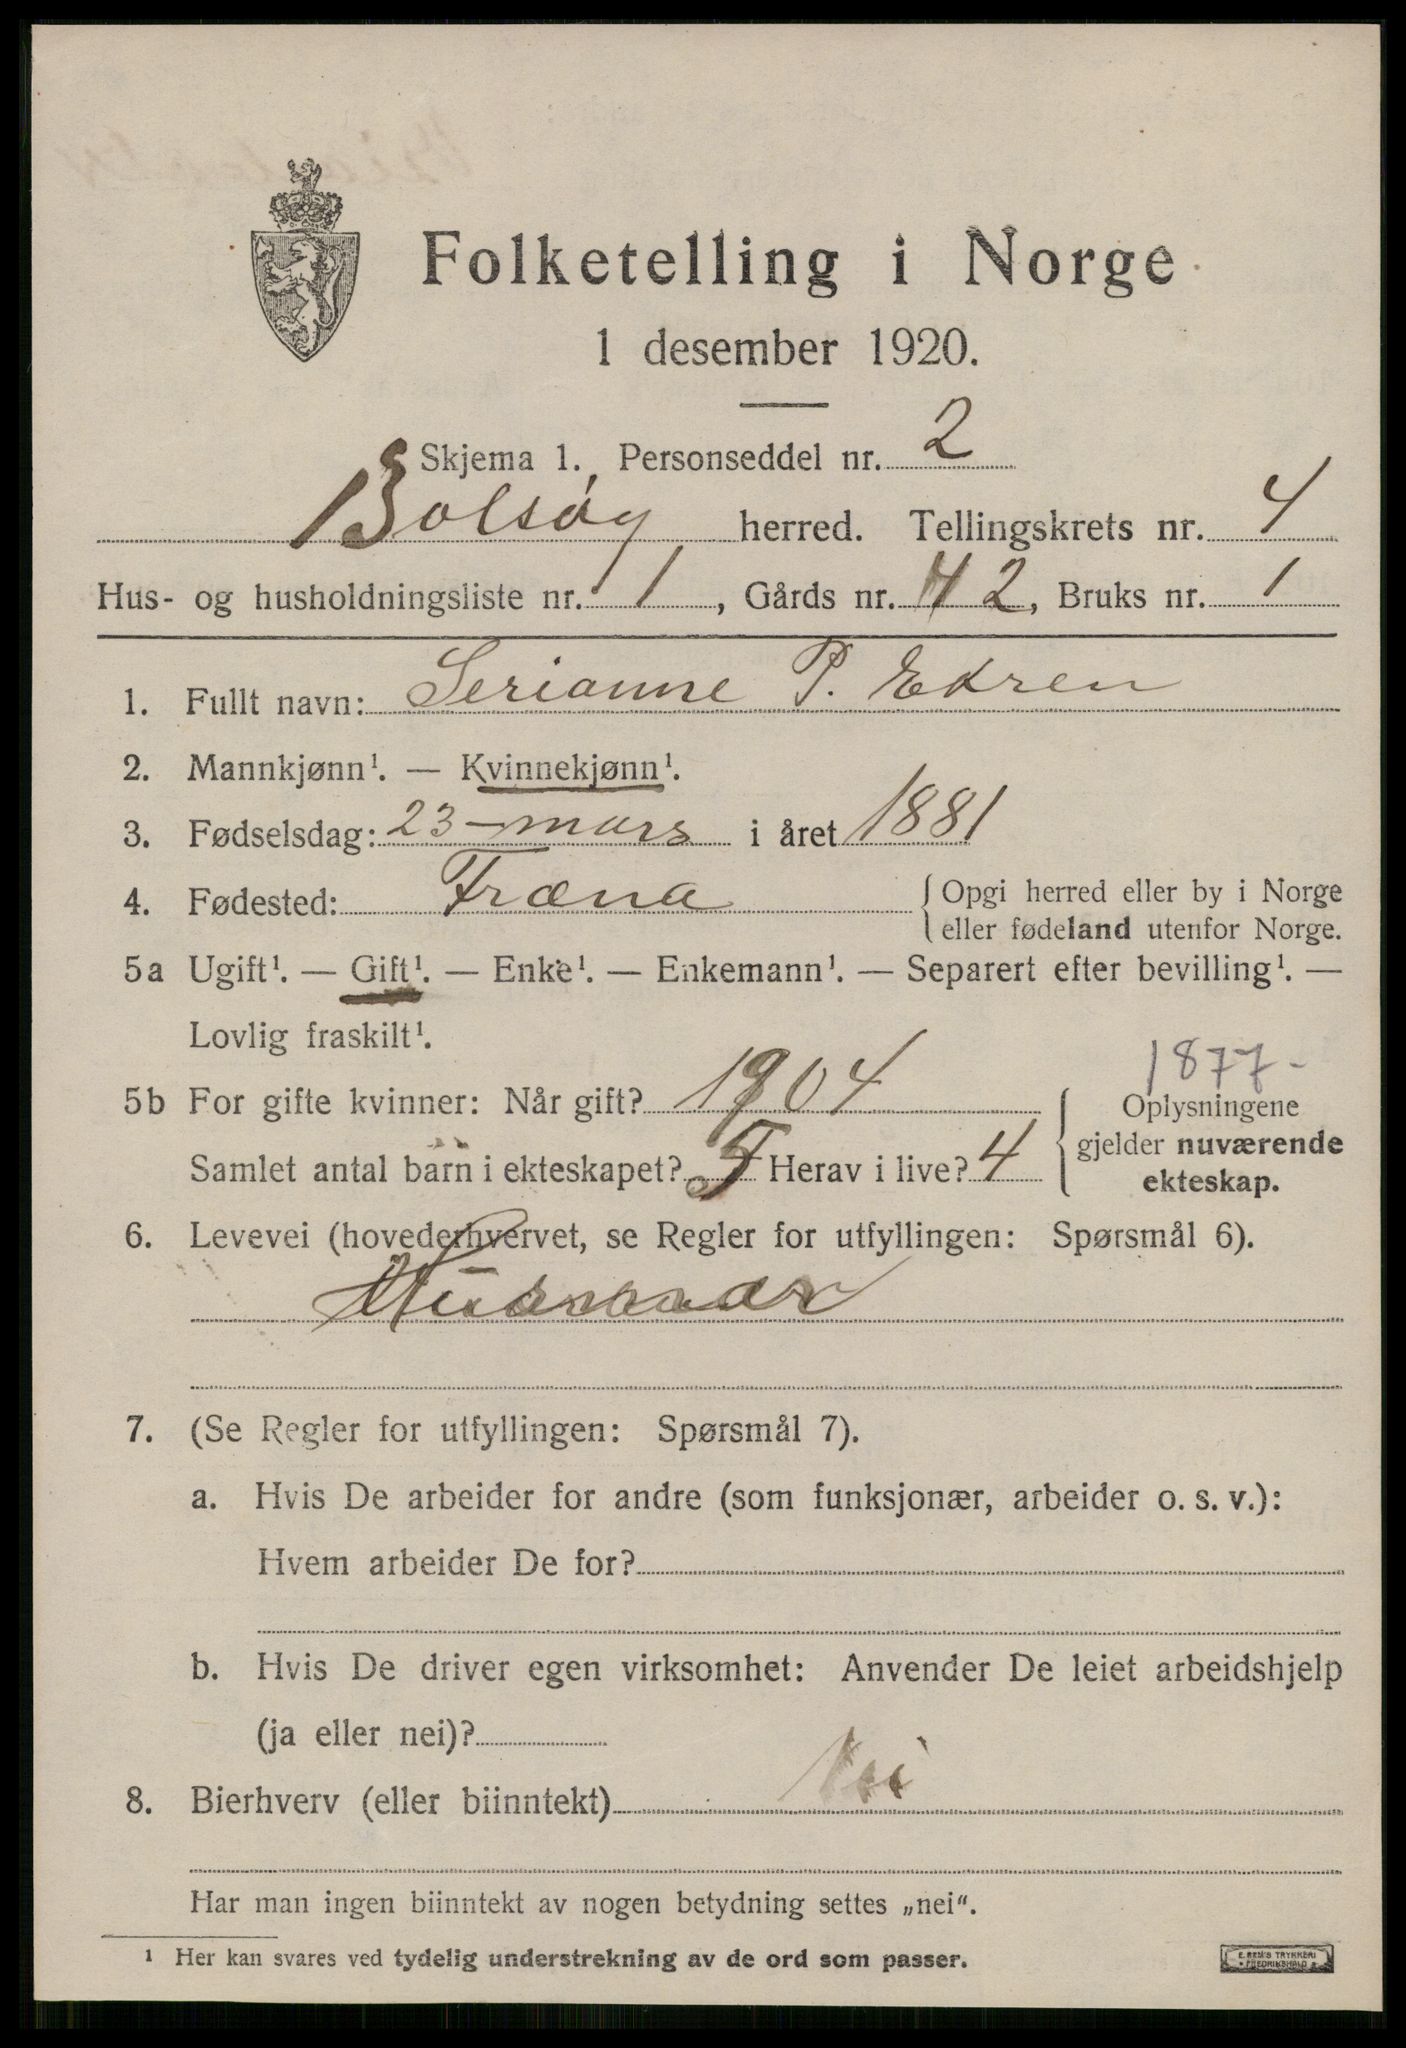 Folketelling i Norge
1 desember 1920.
Skjema 1. Personseddel nr. 2
Bolsøy herred. Tellingskrets nr. 4
Hus- og husholdningsliste nr. 1, Gårds nr. 42, Bruks nr. 1
1. Fullt navn: Serianne P. Ekren
2. Mannkjønn¹. — Kvinnekjønn¹.
3. Fødselsdag: 23 - mars i året 1881
4. Fødested: Fræna { Opgi herred eller by i Norge
eller fødeland utenfor Norge.
5a Ugift¹. — Gift¹. — Enke¹. — Enkemann¹. — Separert efter bevilling¹. —
Lovlig fraskilt¹.
1877-
5b For gifte kvinner: Når gift? 1904 { Oplysningene
gjelder nuværende
Samlet antal barn i ekteskapet? 5 Herav i live? 4
ekteskap.
6. Levevei (hovederhvervet, se Regler for utfyllingen: Spørsmål 6).
Husmor
7. (Se Regler for utfyllingen: Spørsmål 7).
a. Hvis De arbeider for andre (som funksjonær, arbeider o. s. v.):
Hvem arbeider De for?
b. Hvis De driver egen virksomhet: Anvender De leiet arbeidshjelp
(ja eller nei)?
8. Bierhverv (eller biinntekt) Nei
Har man ingen biinntekt av nogen betydning settes „nei“.
¹ Her kan svares ved tydelig understrekning av de ord som passer.
E. REM'S TRYKKERI
• FREDRIKSHALD •